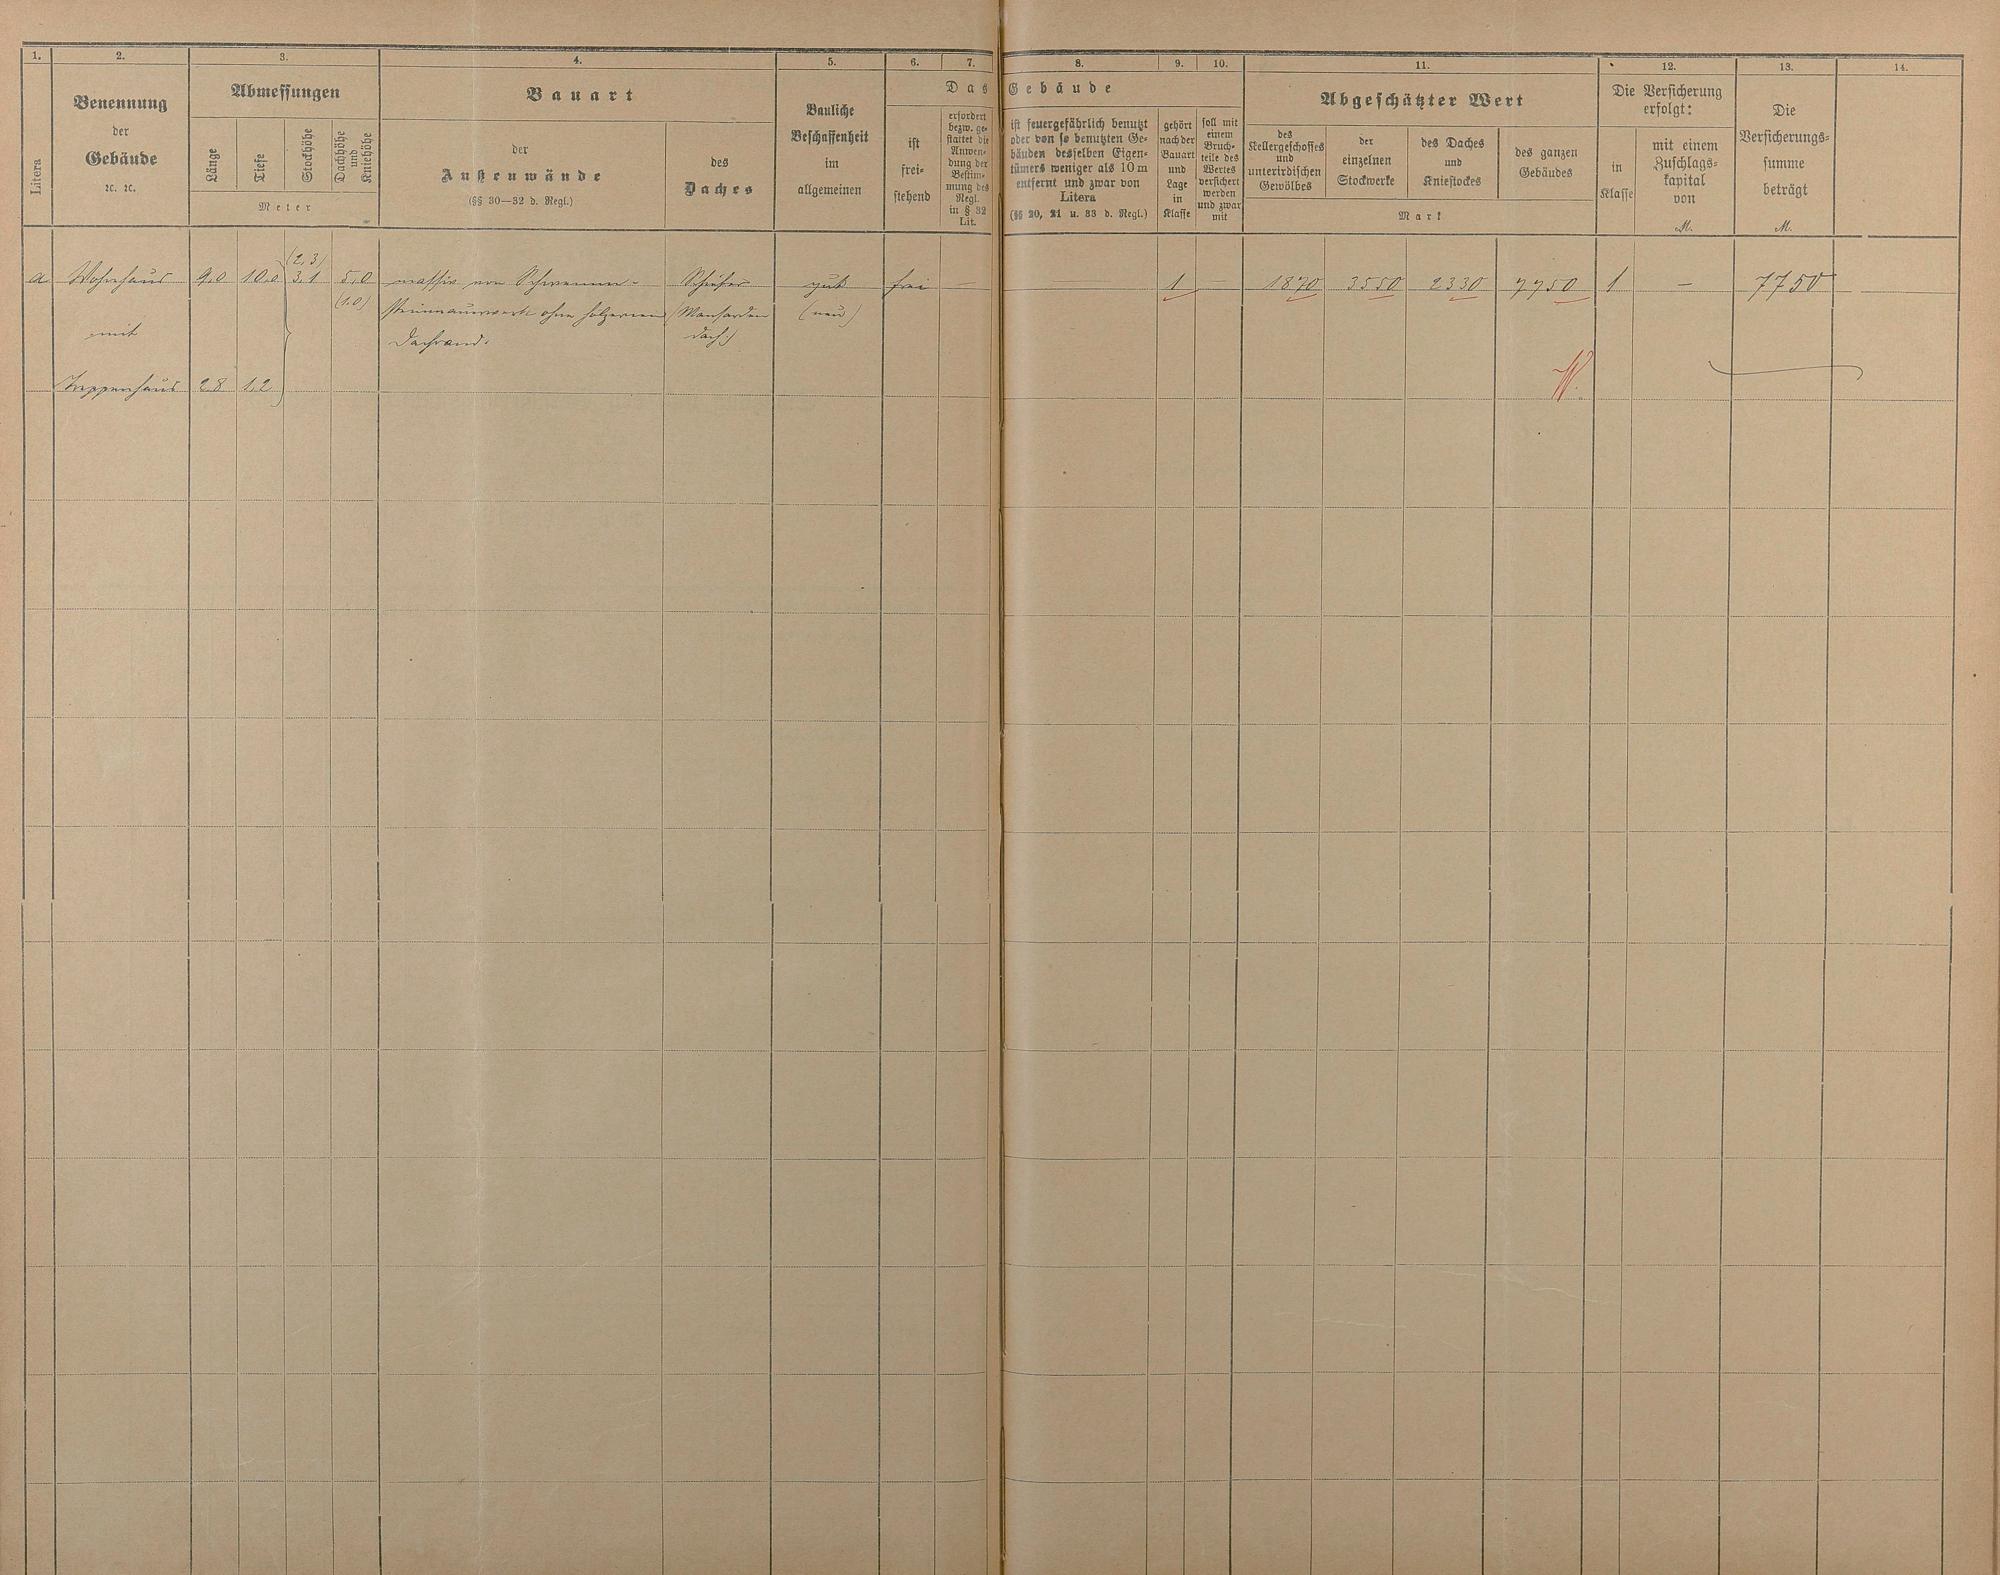 1. 2. 3. 4. 5. 6. 7. 8. 9. 10. 11. 12. 13. 14.
Litera
Benennung
der
Gebäude
ꝛc. ꝛc.
Abmessungen
Länge
Tiefe
Stockhöhe
Dachhöhe
und
Kniehöhe
Meter
Bauart
der
Außenwände
(§§ 30—32 d. Regl.)
des
Daches
Bauliche
Beschaffenheit
im
allgemeinen
Das Gebäude
ist
frei-
stehend
erfordert
bezw. ge-
stattet die
Anwen-
dung der
Bestim-
mung des
Regl.
in § 32
Lit.
ist feuergefährlich benutzt
oder von so benutzten Ge-
bäuden desselben Eigen-
tümers weniger als 10 m
entfernt und zwar von
Litera
(§§ 20, 21 u. 33 d. Regl.)
gehört
nach der
Bauart
und
Lage
in
Klasse
soll mit
einem
Bruch-
teile des
Wertes
versichert
werden
und zwar
mit
Abgeschätzter Wert
des
Kellergeschosses
und
unterirdischen
Gewölbes
der
einzelnen
Stockwerke
des Daches
und
Kniestockes
des ganzen
Gebäudes
Mark
Die Versicherung
erfolgt:
in
Klasse
mit einem
Zuschlags-
kapital
von
M.
Die
Versicherungs-
summe
beträgt
M.
(2,3)
a Wohnhaus 9,0 10,0 3,1 5,0 massiv von Schwemm- Schiefer gut frei — 1 — 1870 3550 2330 7750 1 — 7750
(1.0) steinmauerwerk ohne hölzernen (Mansarden (neu)
mit Dachrand. dach)
Treppenhaus 2,8 1,2